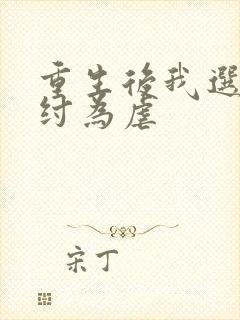 重生後我選
紂為虐
宋丁